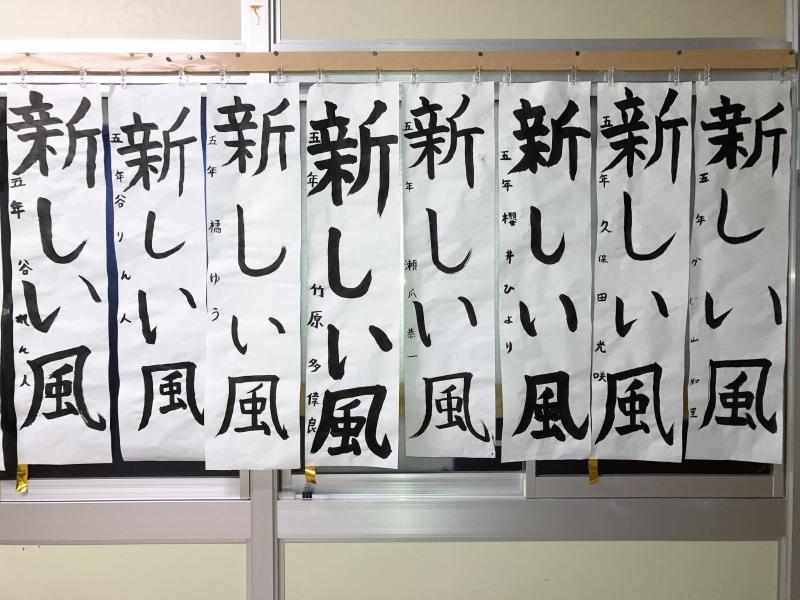 新しい風
五年 谷 れん人
新しい風
五年 谷りん人
新しい風
五年 橘ゆう
新しい風
五年 竹原 多偉良
新しい風
五年 瀬爪恭一
新しい風
五年 櫻井ひより
新しい風
五年 久保田光咲
新しい風
五年 かじ山知里